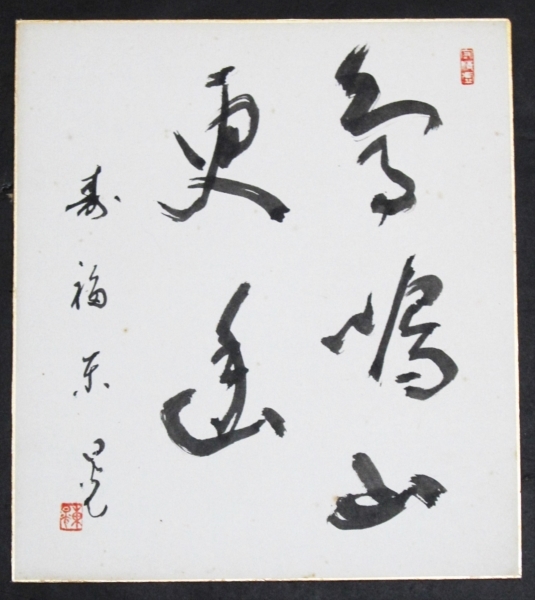 鳥鳴山
更幽
寿福東晃